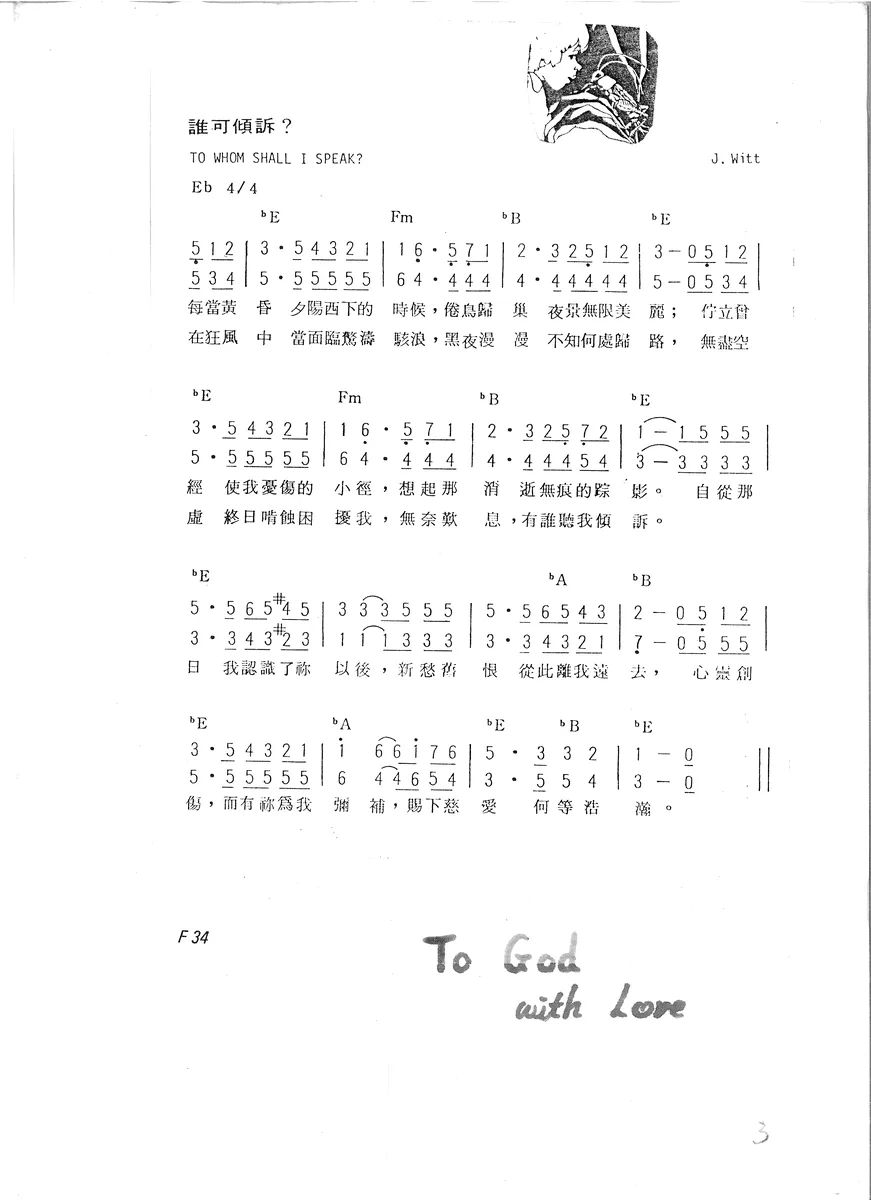 誰可傾訴？
TO WHOM SHALL I SPEAK? J. Witt
Eb 4/4
ᵇE Fm ᵇB ᵇE
5 1 2 | 3 · 5 4 3 2 1 | 1 6 · 5 7 1 | 2 · 3 2 5 1 2 | 3 – 0 5 1 2 |
5 3 4 | 5 · 5 5 5 5 5 | 6 4 · 4 4 4 | 4 · 4 4 4 4 4 | 5 – 0 5 3 4 |
每當黃 昏 夕陽西下的 時候，倦鳥歸 巢 夜景無限美 麗； 佇立曾
在狂風 中 當面臨驚濤 駭浪，黑夜漫 漫 不知何處歸 路，無盡空
ᵇE Fm ᵇB ᵇE
3 · 5 4 3 2 1 | 1 6 · 5 7 1 | 2 · 3 2 5 7 2 | 1 – 1 5 5 5 |
5 · 5 5 5 5 5 | 6 4 · 4 4 4 | 4 · 4 4 4 5 4 | 3 – 3 3 3 3 |
經 使我憂傷的 小徑，想起那 消 逝無痕的踪 影。 自從那
虛 終日啃蝕困 擾我，無奈歎 息，有誰聽我傾 訴。
ᵇE ᵇA ᵇB
5 · 5 6 5 #4 5 | 3 3 3 5 5 5 | 5 · 5 6 5 4 3 | 2 – 0 5 1 2 |
3 · 3 4 3 #2 3 | 1 1 1 3 3 3 | 3 · 3 4 3 2 1 | 7 – 0 5 5 5 |
日 我認識了祢 以後，新愁舊 恨 從此離我遠 去， 心靈創
ᵇE ᵇA ᵇE ᵇB ᵇE
3 · 5 4 3 2 1 | 1 6 6 1 7 6 | 5 · 3 3 2 | 1 – 0 ||
5 · 5 5 5 5 5 | 6 4 4 6 5 4 | 3 · 5 5 4 | 3 – 0 ||
傷，而有祢爲我 彌 補，賜下慈 愛 何等浩 瀚。
F 34
To God
with Love
3